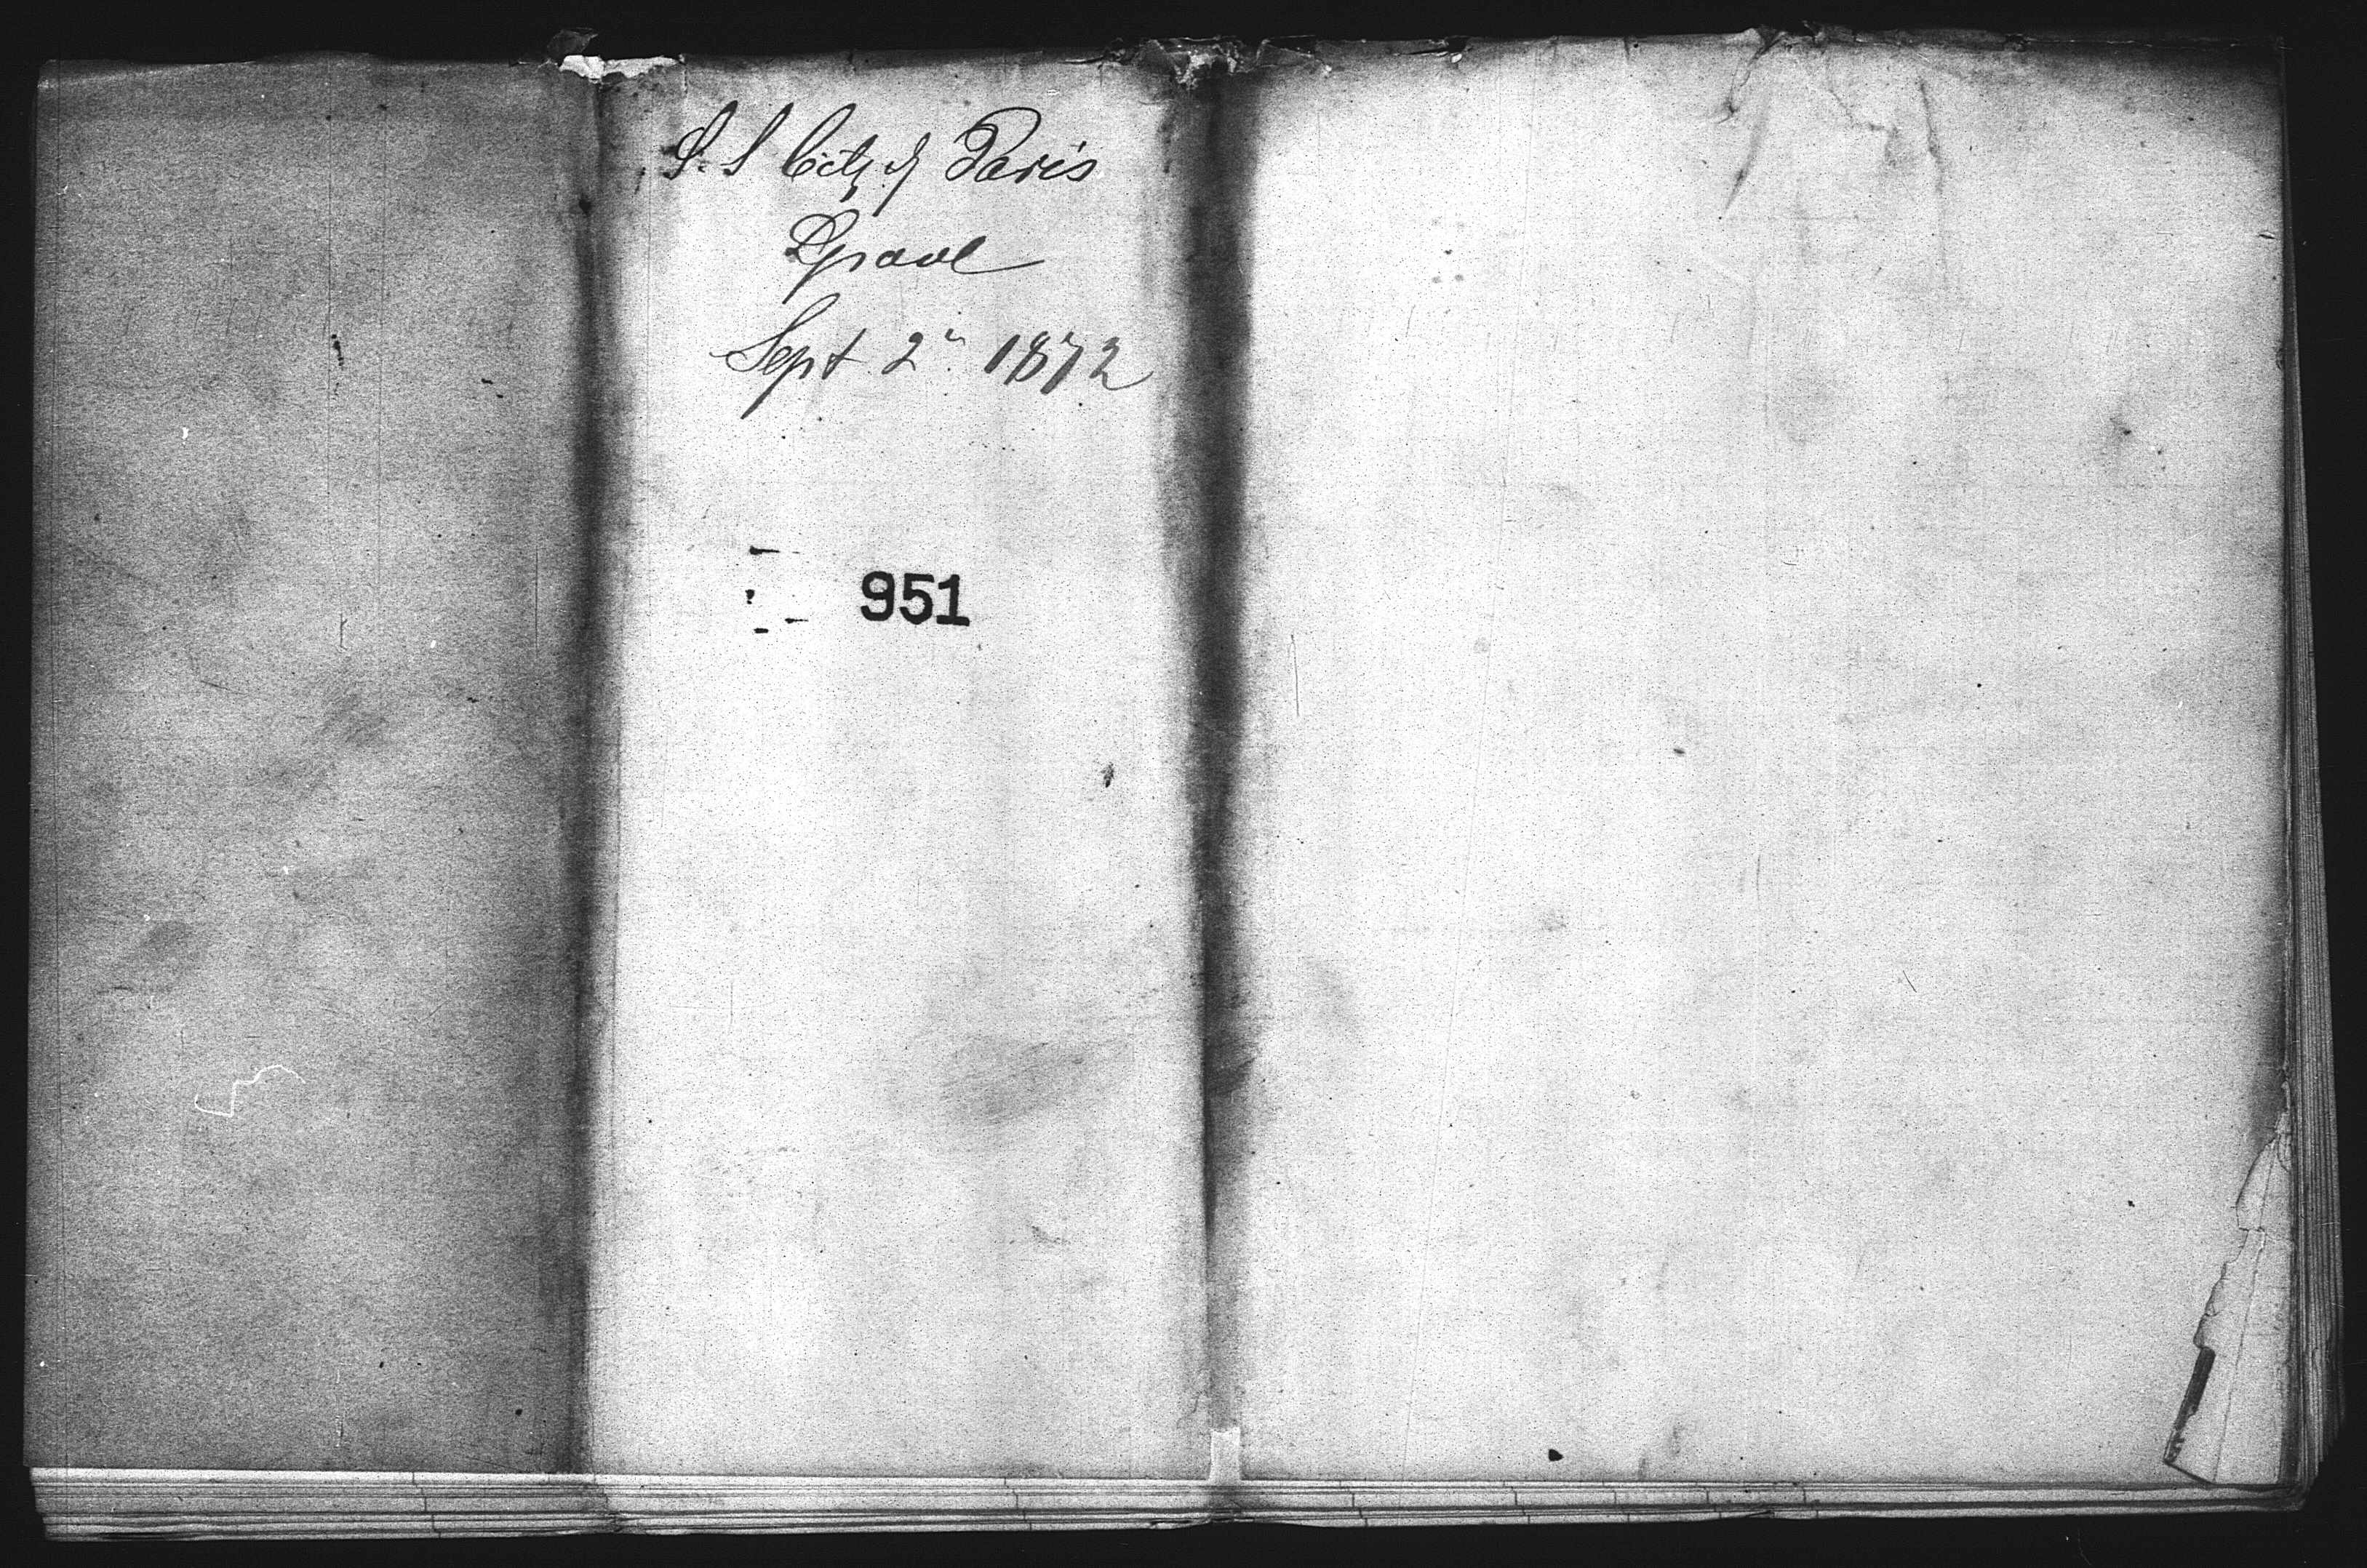 S. S City of Paris
Lpool
Sept 2" 1872
951